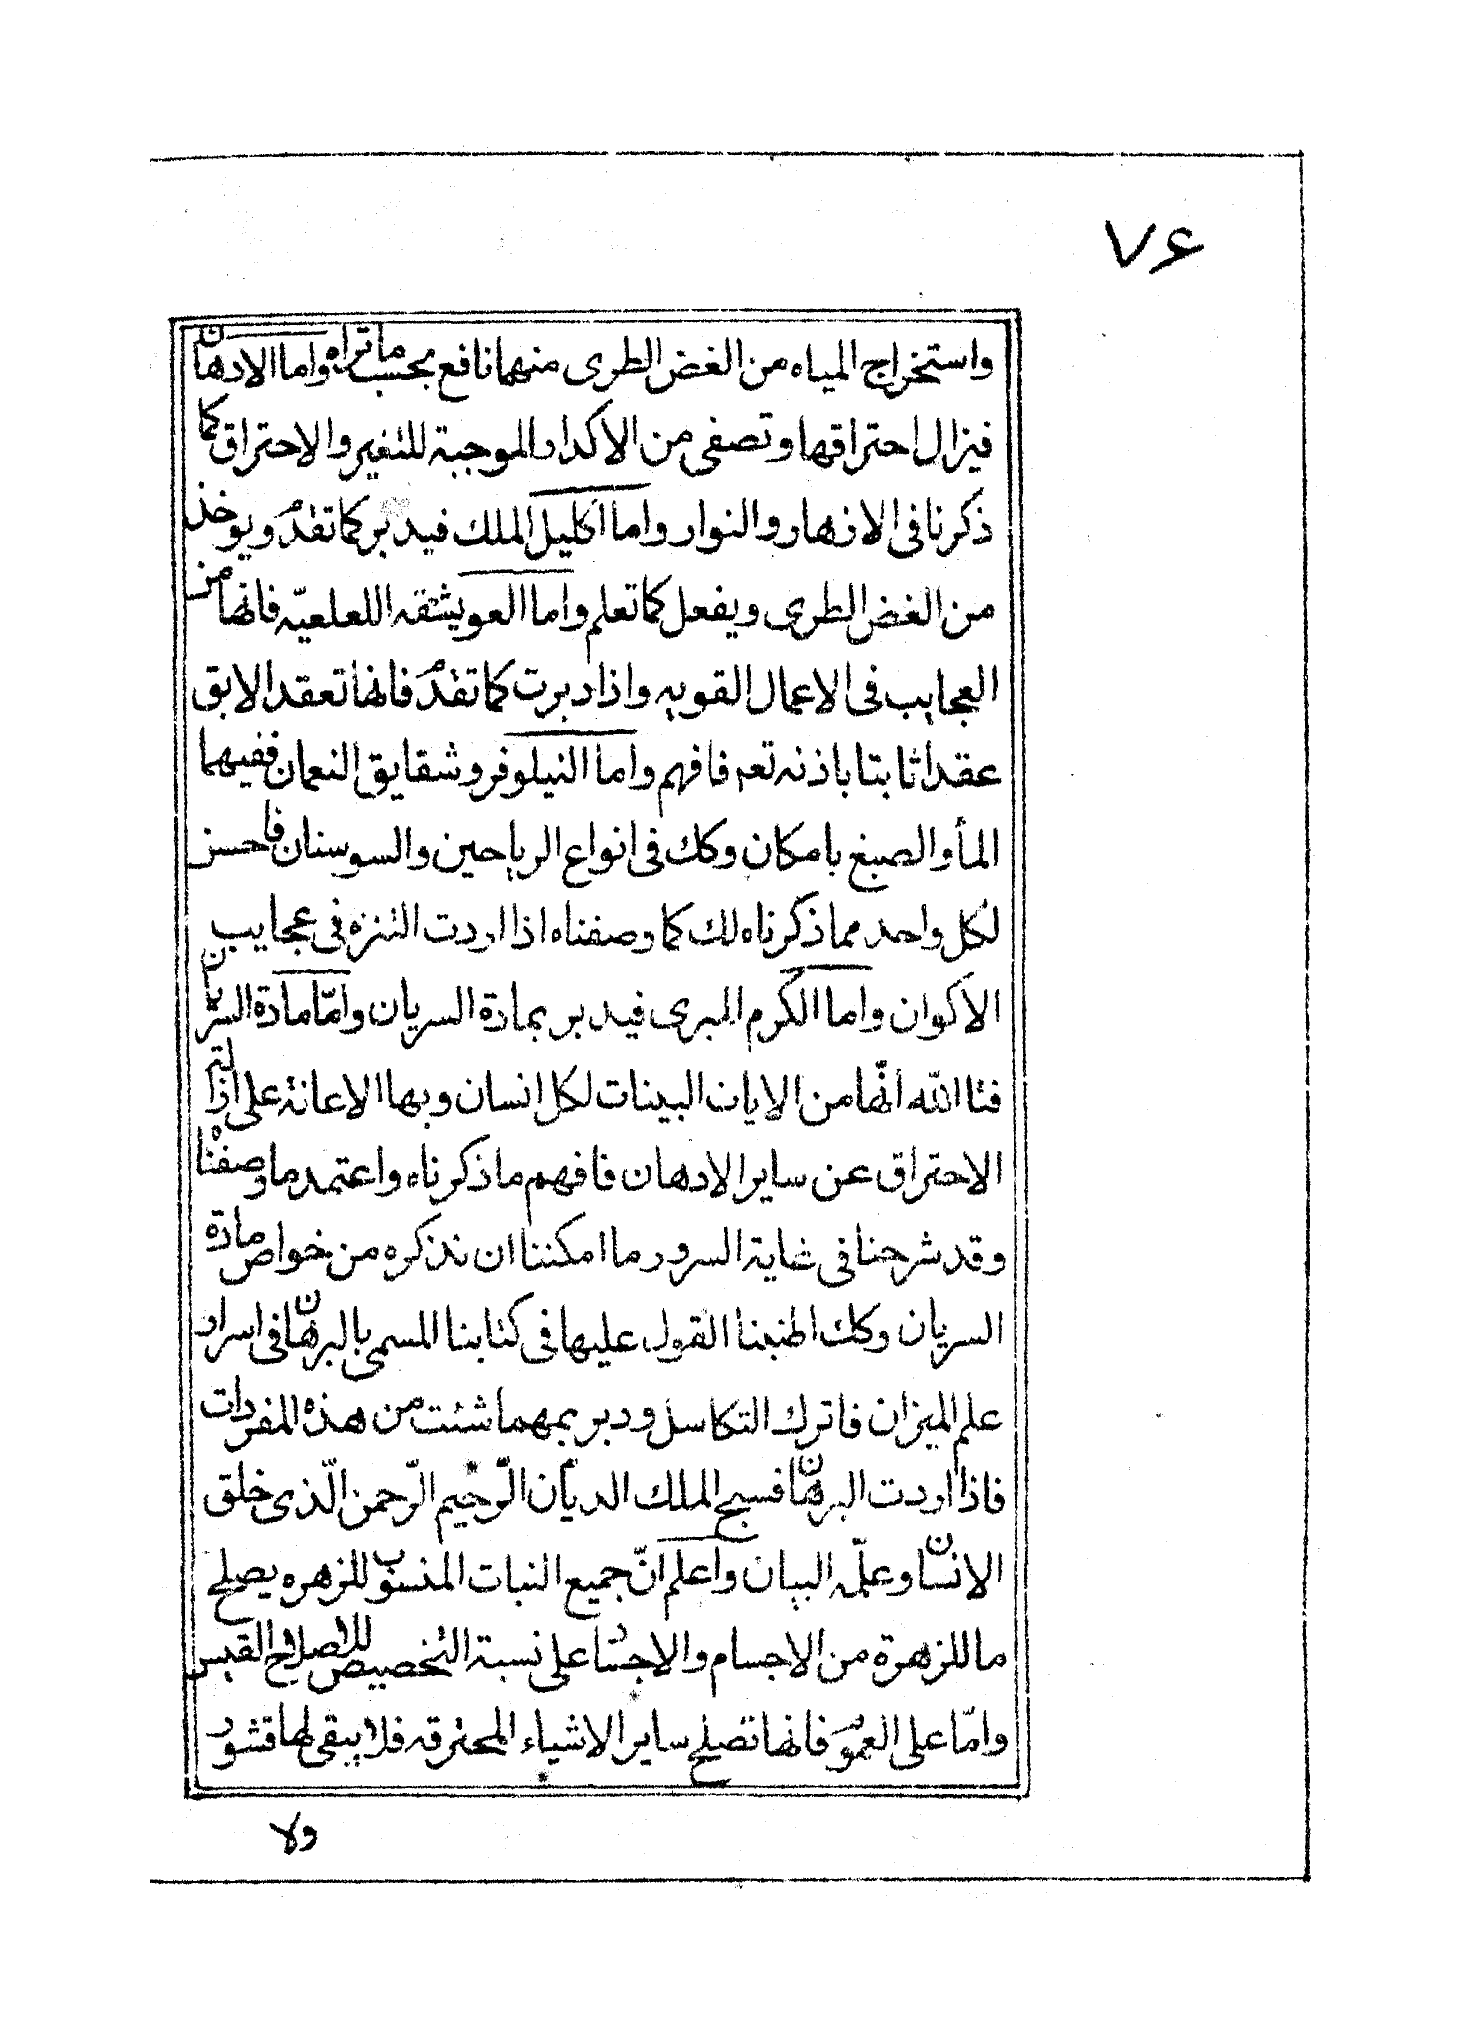 ٧٤
واستخراج المياه من الغض الطرى منهما نافع بحسب ما تراه واما الادهان
فيزال احتراقها وتصفى من الاكدار الموجبة للتغير والاحتراق كما
ذكرنا فى الازهار والنوار واما اكليل الملك فيدبر كما تقدم ويوخذ
من الغض الطرى ويفعل كما تعلم واما اللعلعيّه فانها من
العجايب فى الاعمال القويه واذا دبرت كما تقدم فانها تعقد الابق
عقدا ثابتا باذنه تعه فافهم واما النيلوفر وشقايق النعمان ففيهما
المأ والصبغ بامكان وكك فى انواع الرياحين والسوسنان فاحسن
لكل واحد مما ذكرناه لك كما وصفناه اذا اردت التنزه فى عجايب
الاكوان واما الكرم البرى فيدبر بمادة السريان وامّا مادة السريان
فتا الله انّها من الايات البينات لكل انسان وبها الاعانة على ازالة
الاحتراق عن ساير الادهان فافهم ما ذكرناه واعتمد ما وصفناه
وقد شرحنا فى غاية السرور ما امكننا ان نذكره من خواص مادة
السريان وكك اطنبنا القول عليها فى كتابنا المسمى بالبرهان فى اسرار
علم الميزان فاترك التكاسل ودبر بمهما شئت من هذه المفردات
فاذا اردت البرهان فسبح الملك الديان الرّحيم الرّحمن الّذى خلق
الانسان وعلّمه البيان واعلم انّ جميع النبات المنسوب للزهره يصلح
ما للزهرة من الاجسام والاجساد على نسبة التخصيص للاصلاح القبس
وامّا على العموم فانها تصلح ساير الاشياء المحترقه فلا يبقى لها قشور
ولا